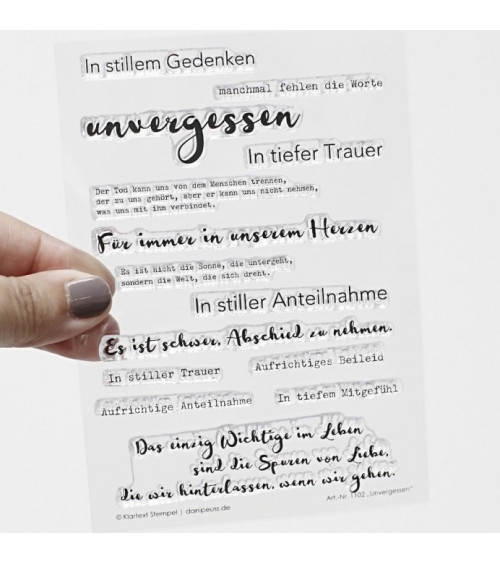 In stillem Gedenken
manchmal fehlen die Worte
unvergessen
In tiefer Trauer
Der Tod kann uns von dem Menschen trennen,
der zu uns gehört, aber er kann uns nicht nehmen,
was uns mit ihm verbindet.
Für immer in unserem Herzen
Es ist nicht die Sonne, die untergeht,
sondern die Welt, die sich dreht.
In stiller Anteilnahme
Es ist schwer, Abschied zu nehmen.
In stiller Trauer
Aufrichtiges Beileid
Aufrichtige Anteilnahme
In tiefem Mitgefühl
Das einzig Wichtige im Leben
sind die Spuren von Liebe,
die wir hinterlassen, wenn wir gehen.
Art.-Nr. 1102 „Unvergessen“
© Klartext Stempel | danipeuss.de